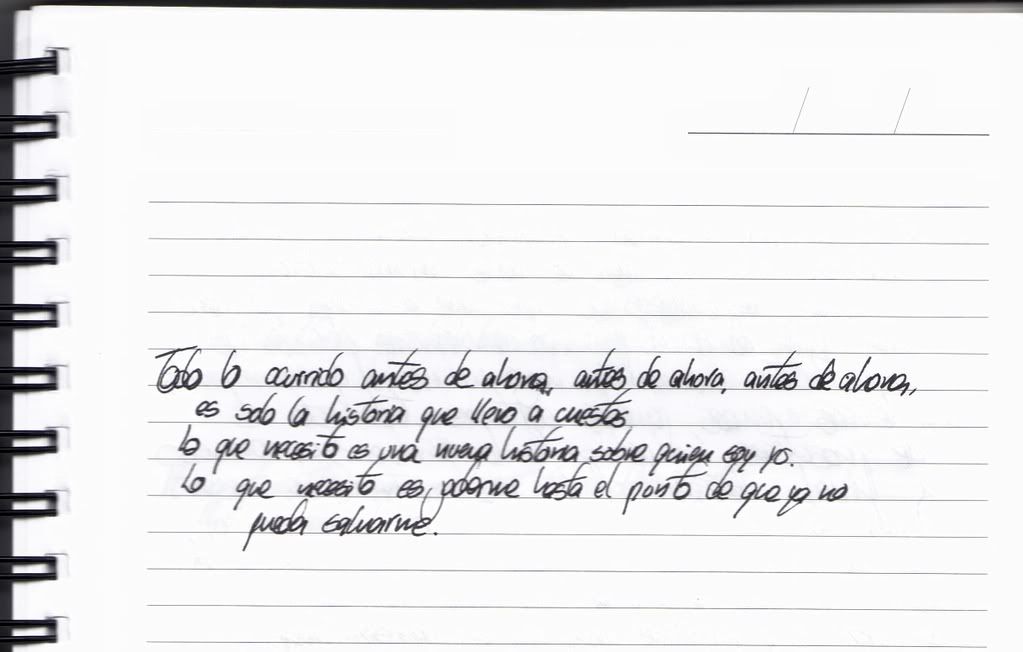 Todo lo ocurrido antes de ahora, antes de ahora, antes de ahora,
es solo la historia que llevo a cuestas
Lo que necesito es una nueva historia sobre quien soy yo.
Lo que necesito es joderme hasta el punto de que ya no
pueda salvarme.